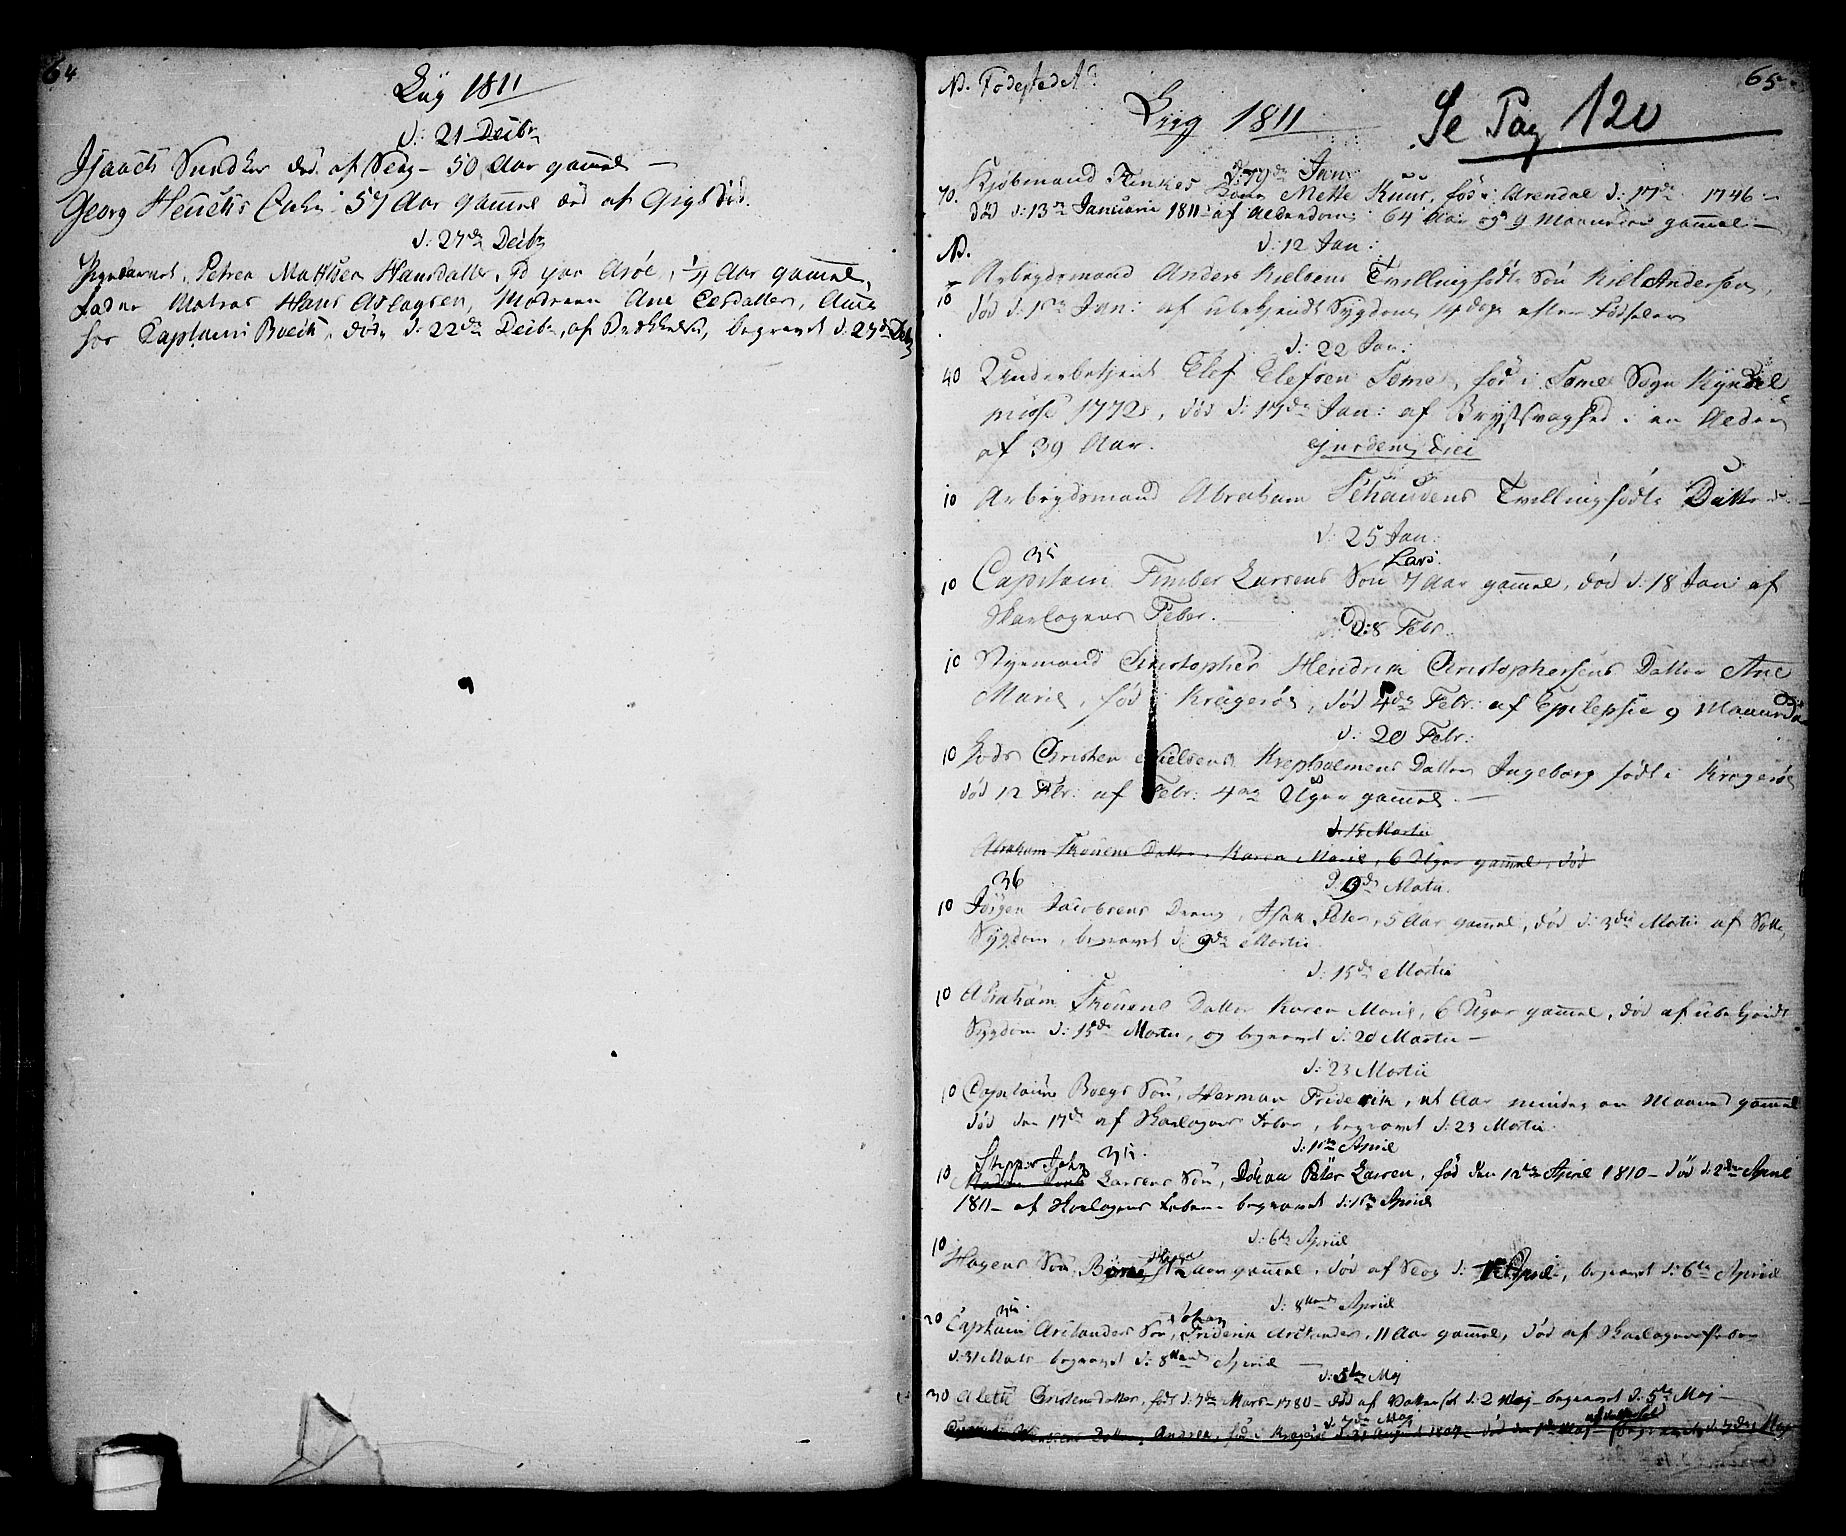 64
Liig 1811
d: 21 Decbr
Isaach Sundker død af Slag - 50 Aar gamel -
Georg Henrichs 57 Aar gamel død af Gigt
d: 27de Decbr
Petrea Matthea Hansdatter, 1/4 Aar gamel,
Fader Matros Hans Aslagsen, Moderen Ane Larsdatter, Amme
hos Captain Boeck, døde d: 22de Decbr, af begravet d: 27de Decbr
65
N. Fødested
Liig 1811
Se Pag 120
d: 19de Jan:
70. Kjøbmand Mette Kuur, fød i Arendal d: 17de 1746 -
død d: 13de Januarii 1811 - af Alderdom, 64 Aar og 9 Maaneder gamel -
N.
d: 12 Jan:
10 Arbeydsmand Anders Nielsens Tvillingfødte Søn Niels Andersen,
død d: 1ste Jan: af ubekjendt Sygdom, 14 dage efter Fødselen
d: 22 Jan:
40 Underbetjent Elef Elefsen Lome, fød i Lome Sogn Kyndel
misse 1772, død d: 17de Jan: af Brystsvaghed i en Alder
af 39 Aar.
ejusdem diei
10 Arbeydsmand Abraham Schaudens Tvillingfødte Datter
d: 25 Jan:
35 Lars
10 Captain Larsens Søn 7 Aar gamel, død d: 18 Jan af
Skarlagens Feber.
D: 8 Febr.
10 Styrmand Christopher Hendrik Christophersens Datter Ane
Marie, fød i Kragerøe, død 4de Febr: af Epilepsie 9 Maaneder
d: 20 Febr:
10 Lods Christen Nielsens Datter Ingeborg født i Kragerøe
død 12 Febr: af Febr: 4re Uger gamel. -
d: 15 Martii
Abraham Skouens Datter, Karen Marie, 6 Uger gamel, død
36
d: 9de Martii.
10 Jørgen Jacobsens Dreng, Isak Peter, 5 Aar gamel, død d: 3die Martii af
Sygdom, begravet d: 9de Martii.
d: 15de Martii
10 Abraham Skouens Datter Karen Marie, 6 Uger gamel, død af ubekjendt
Sygdom d: 15de Martii, og begravet d: 20 Martii -
d: 23 Martii
10 Captain Boegs Søn, Herman Friderik, et Aar mindre en Maaned gamel
død den 17de af Skarlagens Feber, begravet d: 23 Martii.
d: 1ste April
Skipper John
10 Larsens Søn, Johan Peter Larsen, fød den 12te April 1810 - død d: 2den April
1811 - af Skarlagens Feber begravet d: 1ste April
d: 6te April
10 Hagens Søn, Aar gamel, død af Slag d: April, begravet d: 6te April
d: 8tende April
Johan
20 Captain Arctanders Søn, Friderik Arctander, 11 Aar gamel, død af Skarlagens Feber
d: 31 Marts begravet d: 8tende April -
d: 5te Maj
30 Aleth Christensdatter, fød d: 7de Marts 1780 - død af Vattersot d: 2 Maj - begravet d: 5te Maj -
d: 7de Maj
Datter, Andrea, fød i Kragerøe d: 21 August 1807 - død den 1ste Maj begravet d: 7de Maj